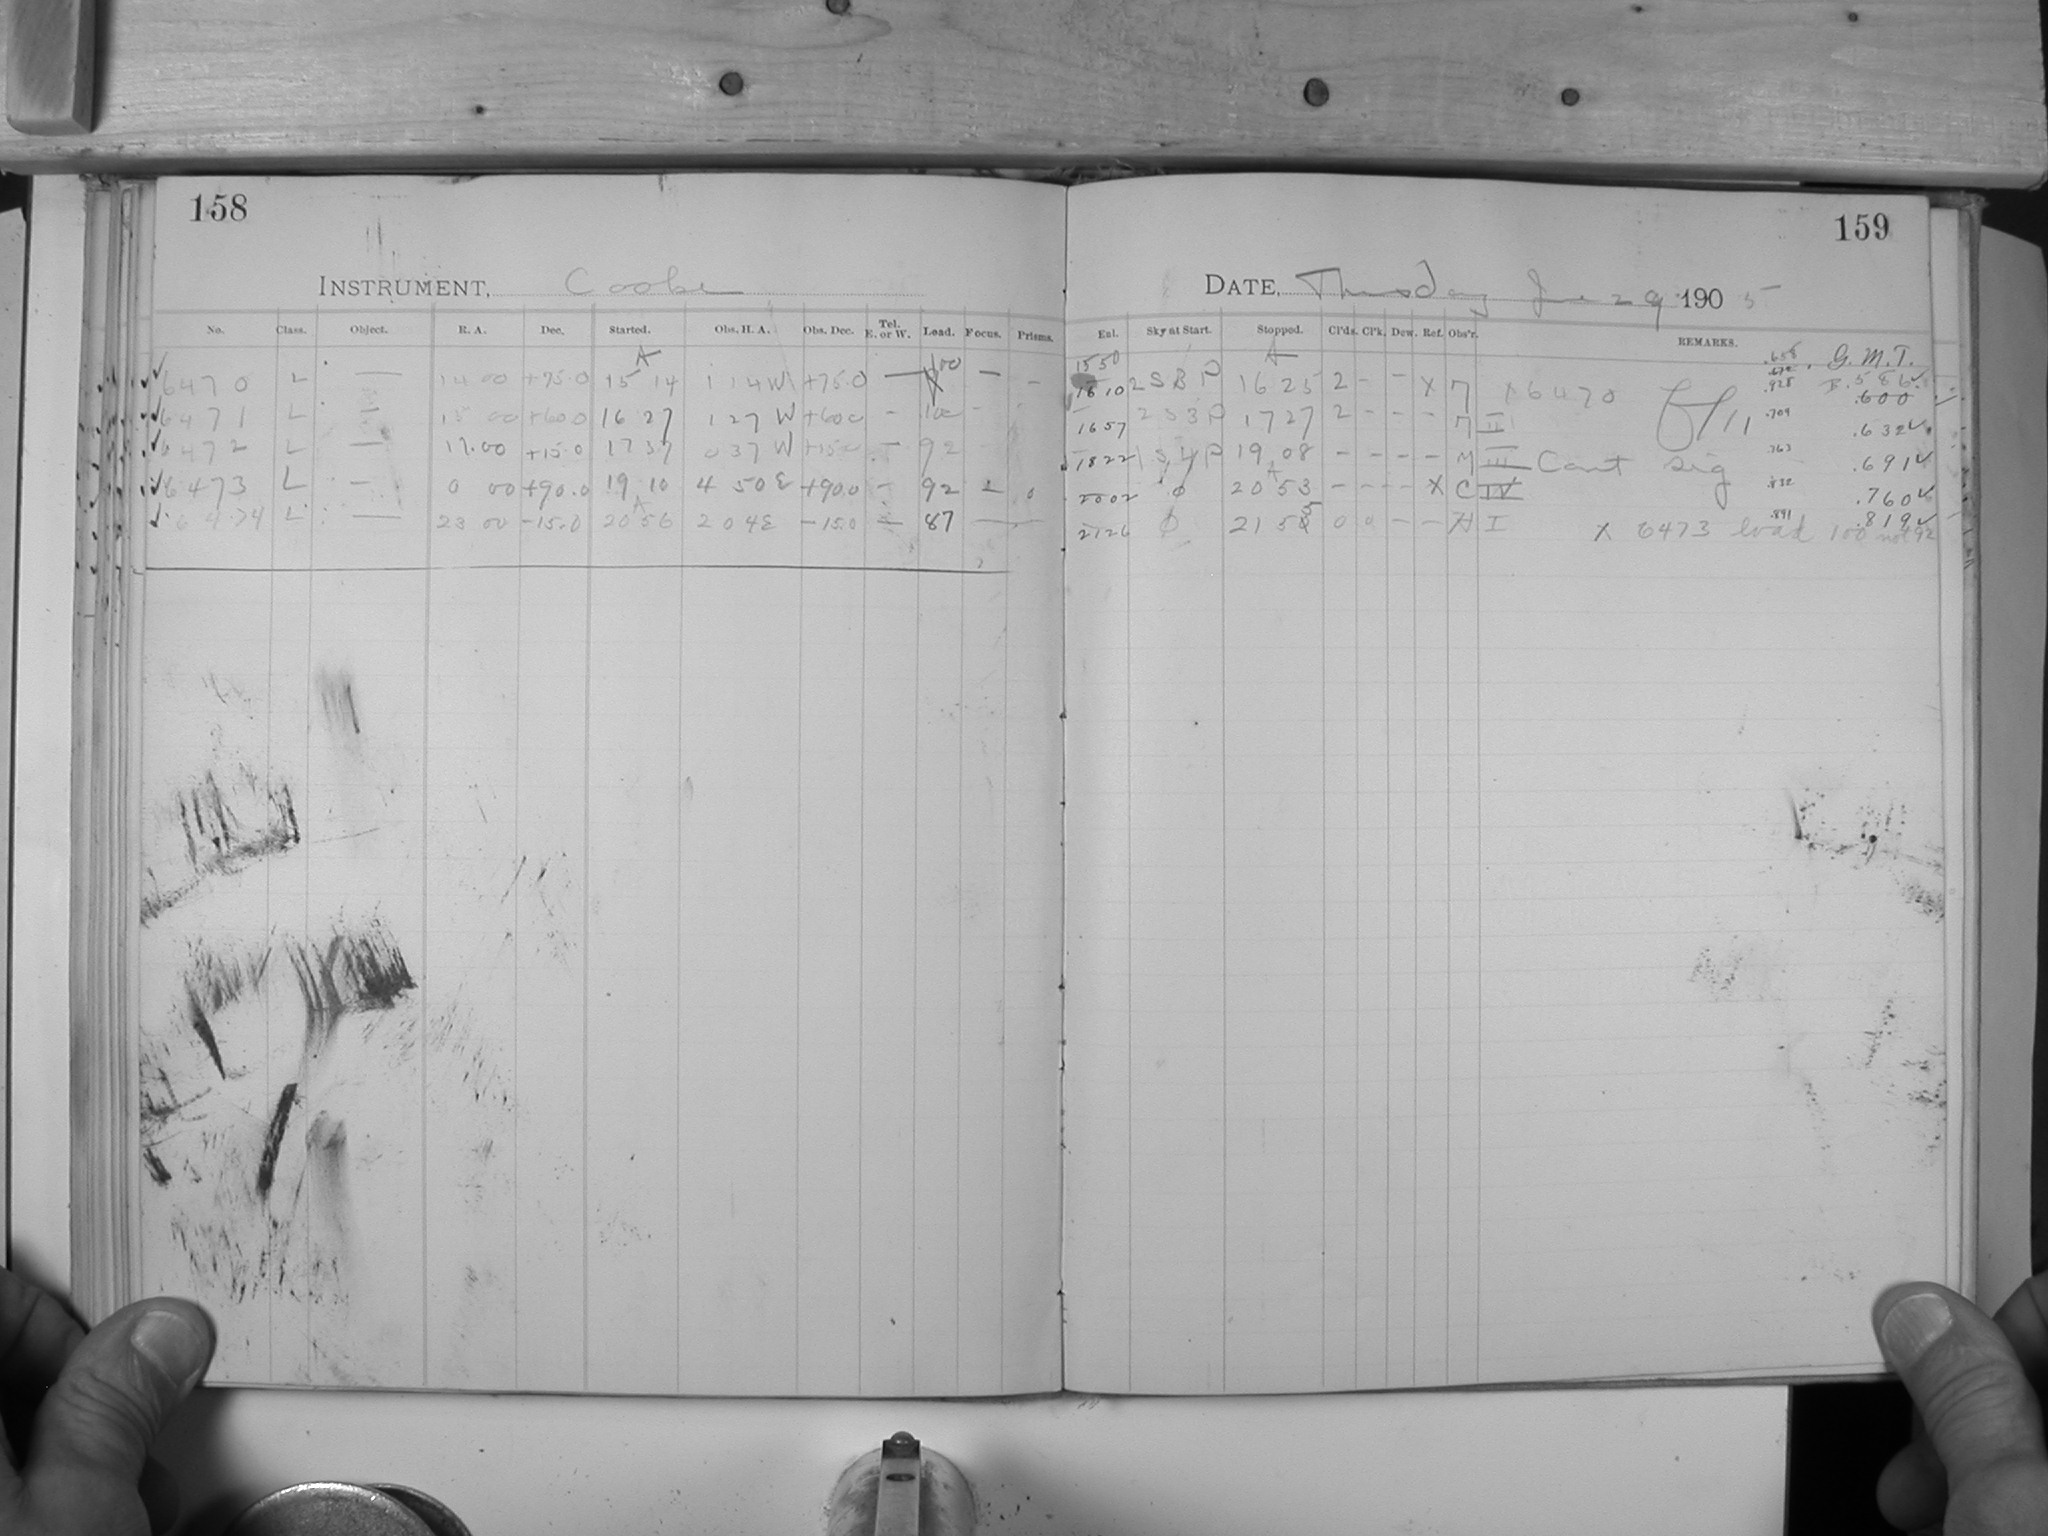 158
INSTRUMENT, Cooke
No. Class. Object. R. A. Dec. Started. Obs. H. A. Obs. Dec. Tel. E. or W. Load. Focus. Prisms.
A 100
✓ 6470 L — 14 00 +75.0 15 14 1 14 W +75.0 — — –
✓ 6471 L 15 00 +60.0 16 27 1 27 W +60.0 – 100 –
✓ 6472 L — 17.00 +15.0 17 37 0 37 W +15.0 – 92
✓ 6473 L – 0 00 +90.0 19 10 4 50 E +90.0 – 92
A
✓ 6474 L — 23 00 –15.0 20 56 2 04 E –15.0 — 87 —
159
DATE, Thursday June 29 1905
Ent. Sky at Start. Stopped. Cl'ds. Cl'k. Dew. Ref. Obs'r. REMARKS.
1550 A .658 G. M. T.
1610 2 S B P 16 25 2 – – X M X 6470 .928 .586 ✓
.600
1657 2 S 3 P 17 27 2 – – – M II .704 .632 ✓
1822 1 S 4 P 19 08 – – – – M III Cant sig .763 .691 ✓
A
2002 ϕ 20 53 – – – X C IV .832 .760 ✓
5
2126 ϕ 21 5 0 0 – – H I .891 .819 ✓
X 6473 load 100 not 92